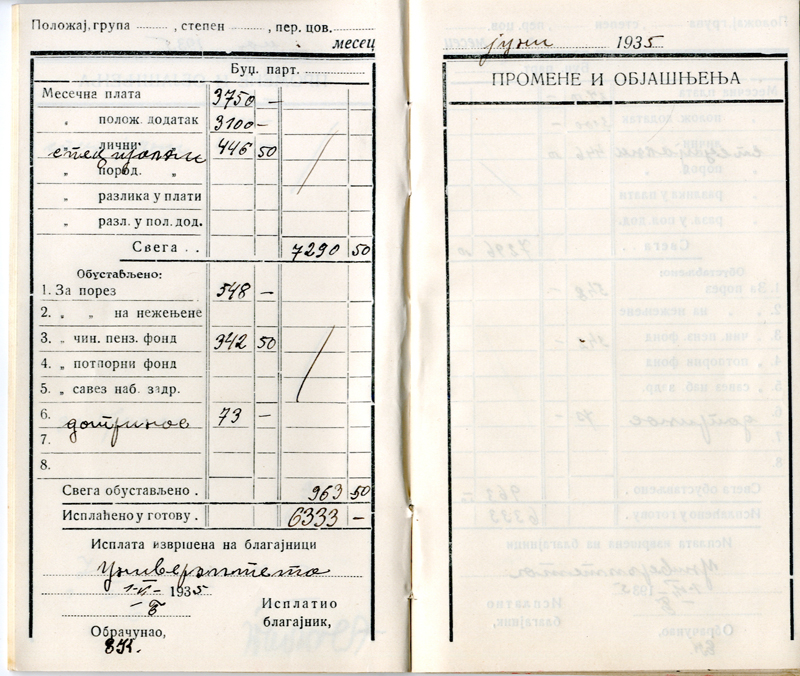 Положај, група ........ , степен ........ , пер. цов. ........
месец јуни 1935
Буџ. парт. ........
Месечна плата 3750 —
„ полож. додатак 3100 —
„ лични „ 446 50
„ пород. „
„ разлика у плати
„ разл. у пол. дод.
Свега . . 7290 50
Обустављено:
1. За порез 548 —
2. „ „ на нежењене
3. „ чин. пенз. фонд 342 50
4. „ потпорни фонд
5. „ савез наб. задр.
6. 73 —
доприносе
7.
8.
Свега обустављено . 963 50
Исплаћено у готову . 6333 —
Исплата извршена на благајници
Универзитета
1-VI- 1935
Исплатио
благајник,
Обрачунао,
ПРОМЕНЕ И ОБЈАШЊЕЊА